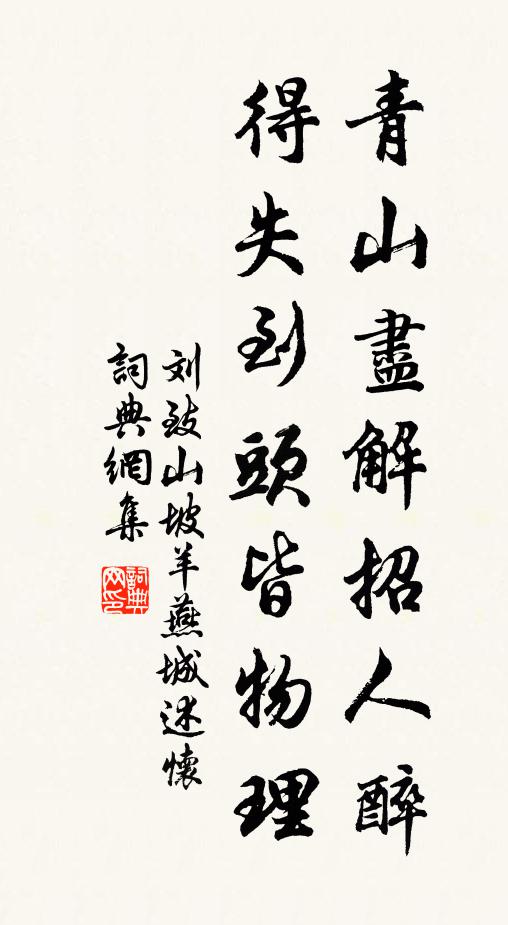 青山盡解招人醉
得失到頭皆物理
刘致山坡羊燕城述懷
詞典網集
詞典
网印